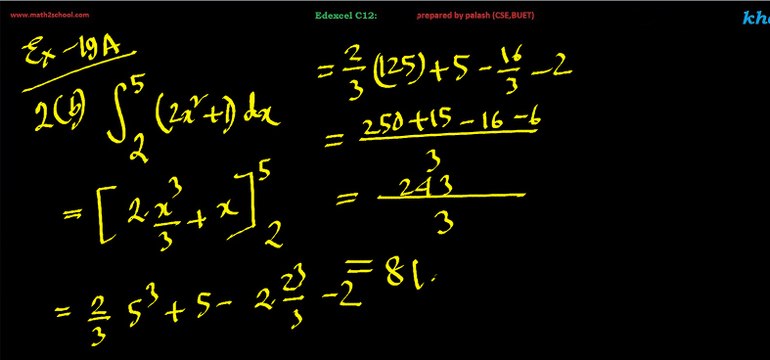 www.math2school.com
Edexcel C12:
prepared by palash (CSE,BUET)
Ex - 19A
2(b) ∫₂⁵ (2x²+1) dx
= [2 x³/3 + x]₂⁵
= 2/3 5³ + 5 - 2 2³/3 - 2
= 2/3 (125) + 5 - 16/3 - 2
= 250 + 15 - 16 - 6 / 3
= 243 / 3
= 81.